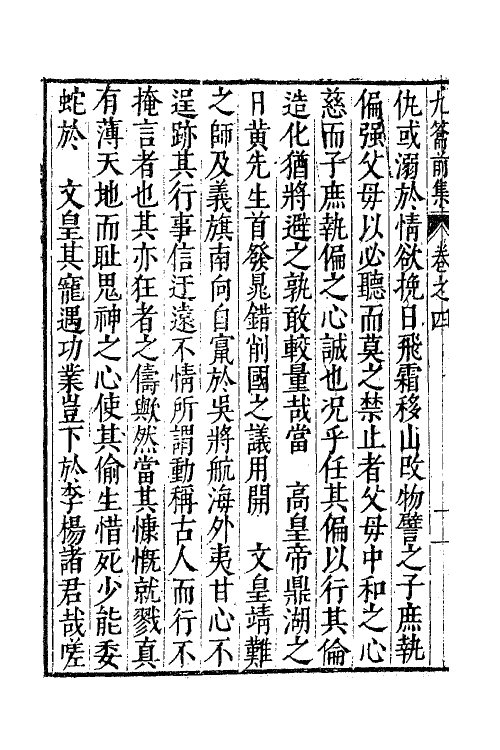 九籥前集 卷之四
仇或溺於情欲挽日飛霜移山改物譬之子庶執
偏强父母以必聽而莫之禁止者父母中和之心
慈而子庶執偏之心誠也况乎任其偏以行其倫
造化猶將避之孰敢較量哉當 高皇帝鼎湖之
日黄先生首發晁錯削國之議用開 文皇靖難
之師及義旗南向自竄於吳將航海外夷甘心不
逞跡其行事信迂遠不情所謂動稱古人而行不
掩言者也其亦狂者之儔歟然當其慷慨就戮真
有薄天地而耻鬼神之心使其偷生惜死少能委
蛇於 文皇其寵遇功業豈下於李楊諸君哉嗟